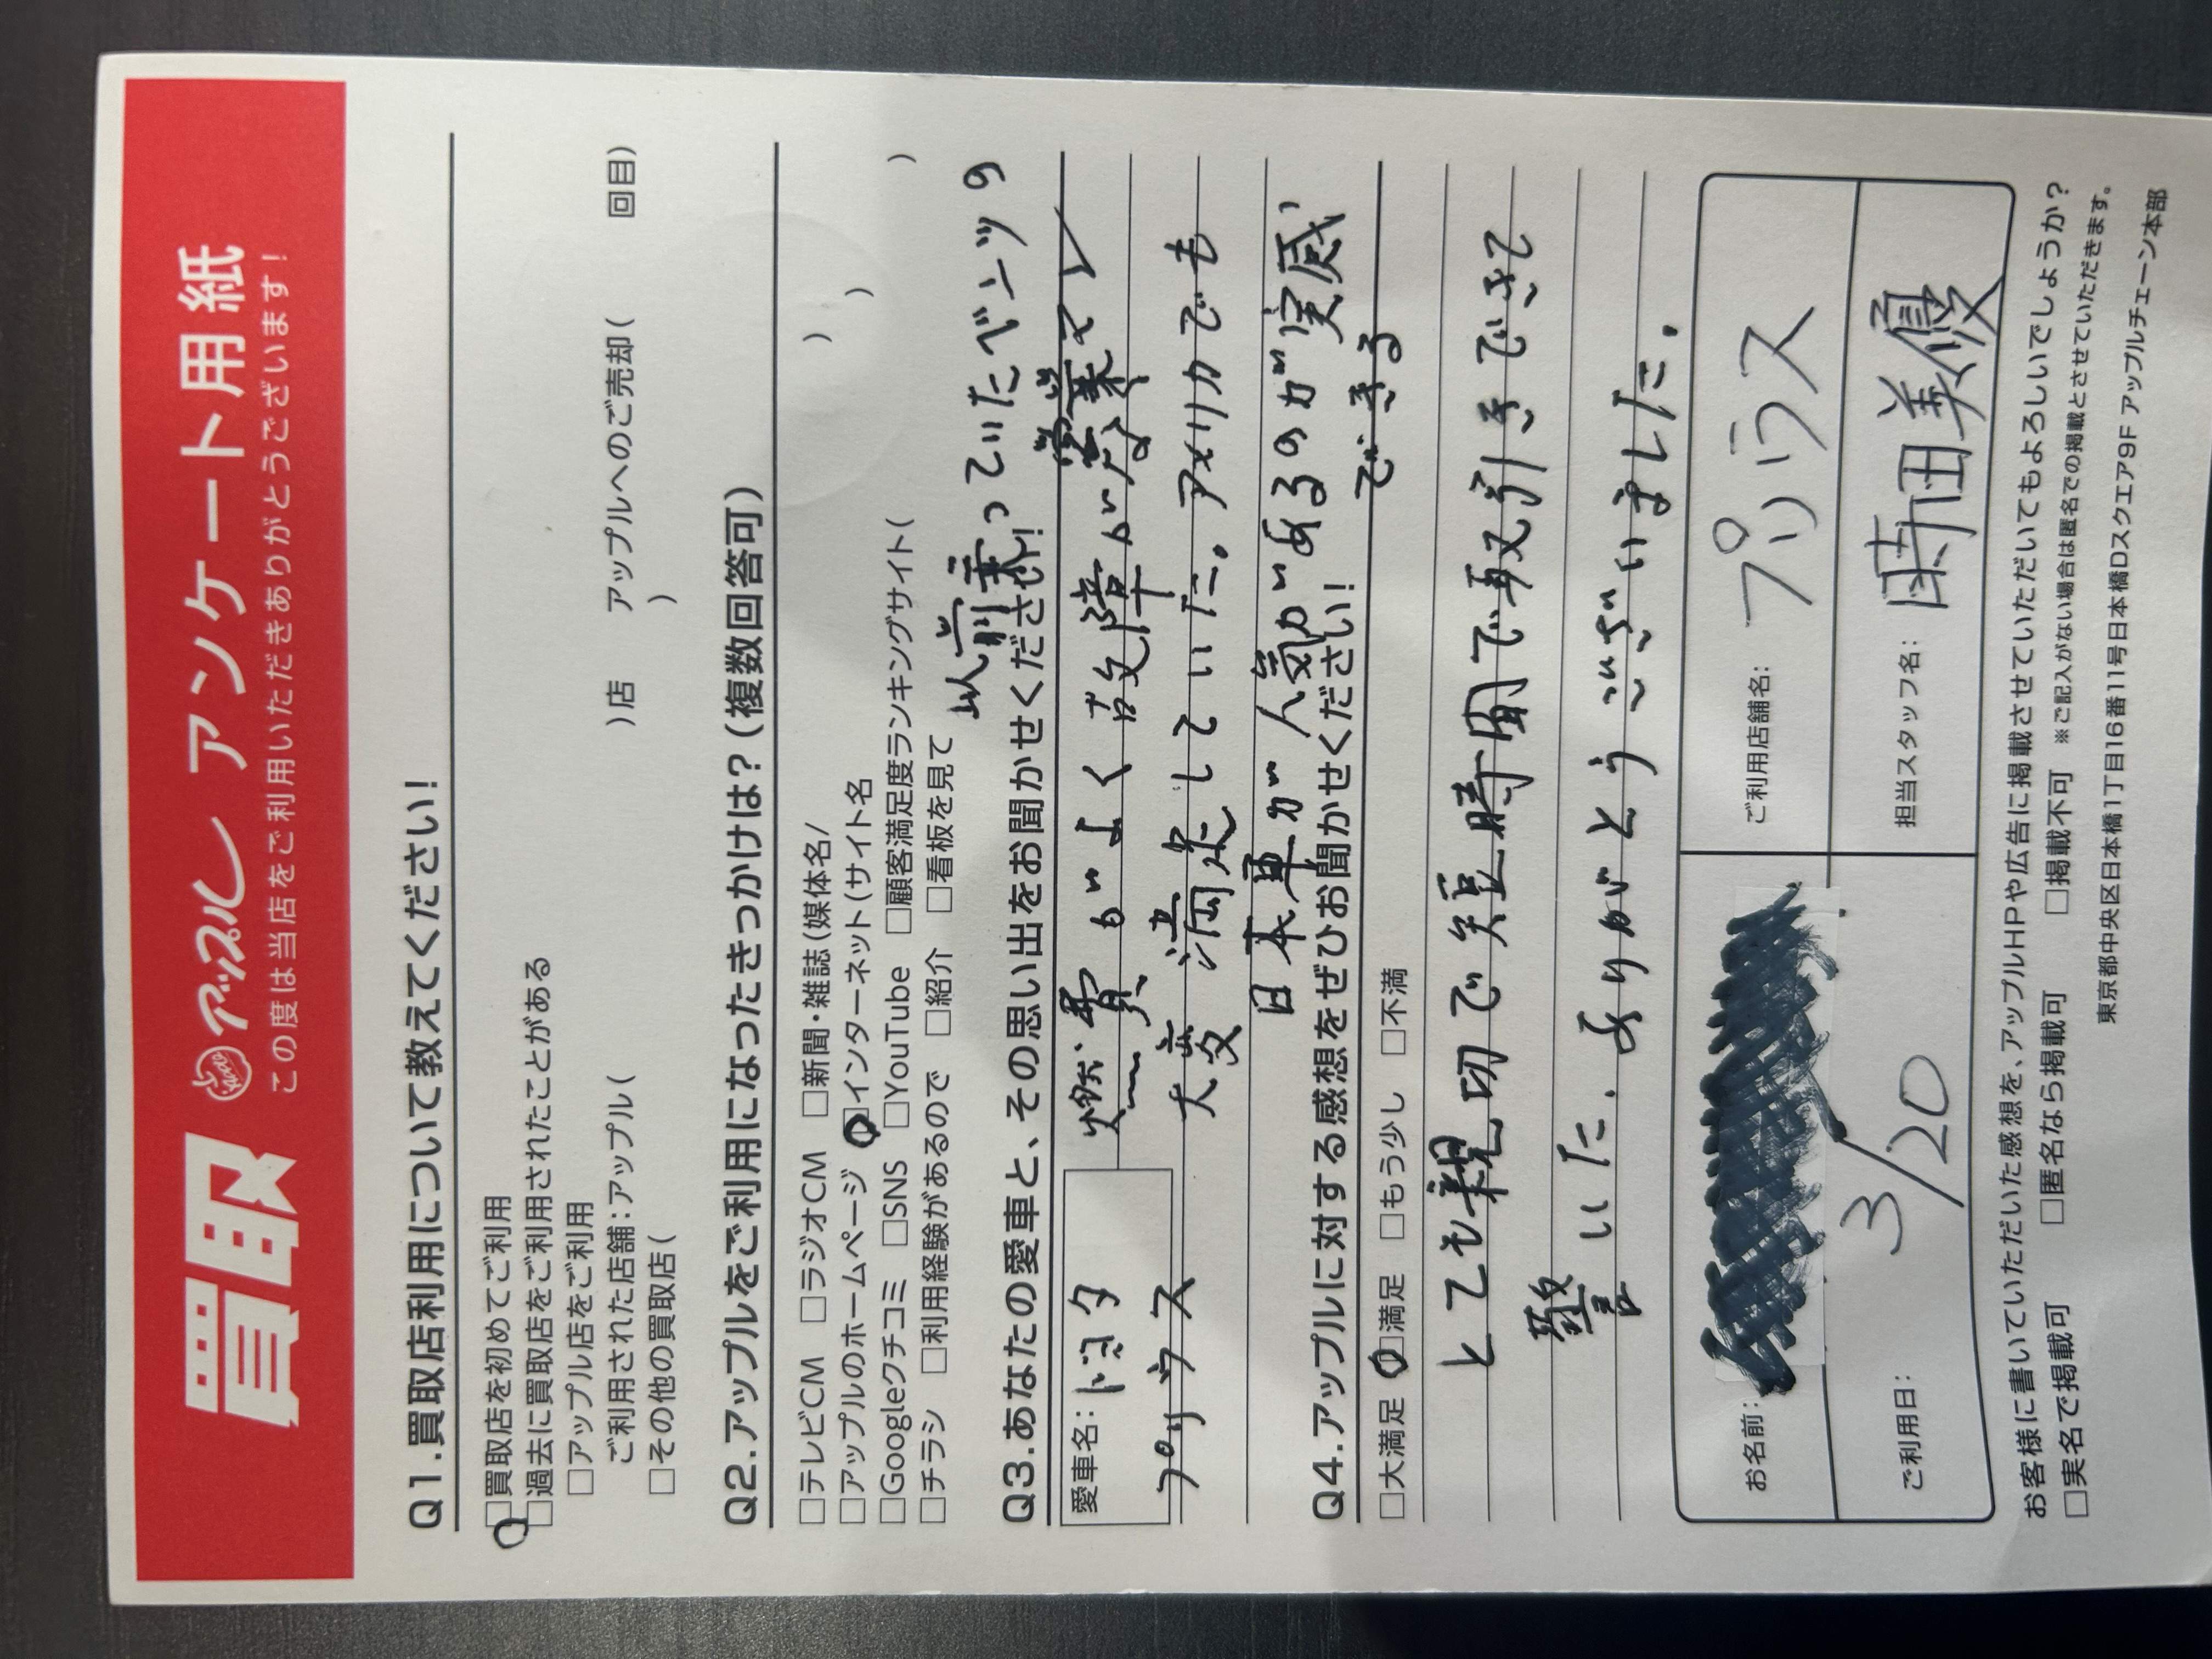 買取 アップル アンケート用紙
この度は当店をご利用いただきありがとうございます!
Q1.買取店利用について教えてください!
□買取店を初めてご利用
□過去に買取店をご利用されたことがある
□アップル店をご利用
ご利用された店舗:アップル( )店 アップルへのご売却( 回目)
□その他の買取店( )
Q2.アップルをご利用になったきっかけは?(複数回答可)
□テレビCM □ラジオCM □新聞・雑誌(媒体名/ )
□アップルのホームページ □インターネット(サイト名 )
□Googleクチコミ □SNS □YouTube □顧客満足度ランキングサイト( )
□チラシ □利用経験があるので □紹介 □看板を見て
Q3.あなたの愛車と、その思い出をお聞かせください!
愛車名: トヨタ
プリウス
以前乗っていたベンツの
燃費がよく故障がな
大変満足していた。アメリカでも
日本車が人気があるのが実感
できる
Q4.アップルに対する感想をぜひお聞かせください!
□大満足 □満足 □もう少し □不満
とても親切で短時間で取引きできて
驚いた. ありがとうございました.
お名前:
ご利用店舗名: プリウス
ご利用日: 3/20
担当スタッフ名: 時田美優
お客様に書いていただいた感想を、アップルHPや広告に掲載させていただいてもよろしいでしょうか?
□実名で掲載可 □匿名なら掲載可 □掲載不可 ※ご記入がない場合は匿名での掲載とさせていただきます。
東京都中央区日本橋1丁目16番11号日本橋Dスクエア9F アップルチェーン本部